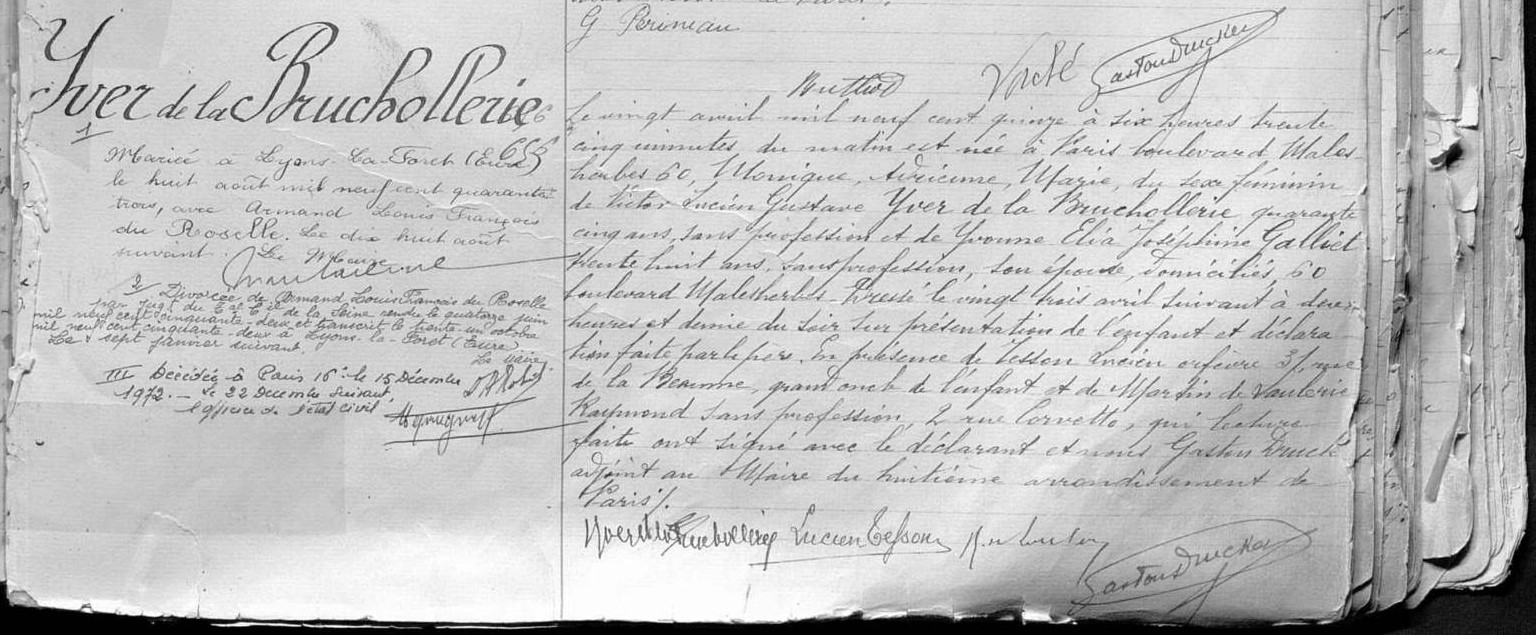 G Perineau
Vaché Gaston Drucker
Yver de la Bruchollerie
666
1
Mariée à Lyons-La-Foret (Eure)
le huit août mil neuf cent quarante
trois, avec Armand Louis François
du Roselle. Le dix huit août
suivant. Le Maire
2 Divorcée de Armand Louis François du Roselle
par jug du T. C. de la Seine rendu le quatorze juin
mil neuf cent cinquante-deux et transcrit le trente un octobre
mil neuf cent cinquante deux à Lyons-la-Foret (Eure)
Le sept janvier suivant.
Le maire
III Décédée à Paris 16e le 15 Décembre
1972. _ Le 22 Decembre suivant,
l'officier de l'état civil,
Le vingt avril mil neuf cent quinze à six heures trente
cinq minutes du matin est née à Paris boulevard Males-
herbes 60, Monique, Adrienne, Marie, du sexe féminin
de Victor Lucien Gustave Yver de la Bruchollerie quarante
cinq ans, sans profession et de Yvonne Elia Joséphine Galliet
trente huit ans, sans profession, son épouse, domiciliés, 60
boulevard Malesherbes. Dressé le vingt trois avril suivant à deux
heures et demie du soir sur présentation de l'enfant et déclara-
tion faite par le père. En présence de Tesson Lucien orfèvre 31, rue
de la , grand oncle de l'enfant et de Martin de
Raymond sans profession, 2 rue Corvetto, qui lecture
faite ont signé avec le déclarant et nous Gaston Druck
adjoint au Maire du huitième arrondissement de
Paris /.
Yver de la Bruchollerie Lucien Tesson
Gaston Drucker